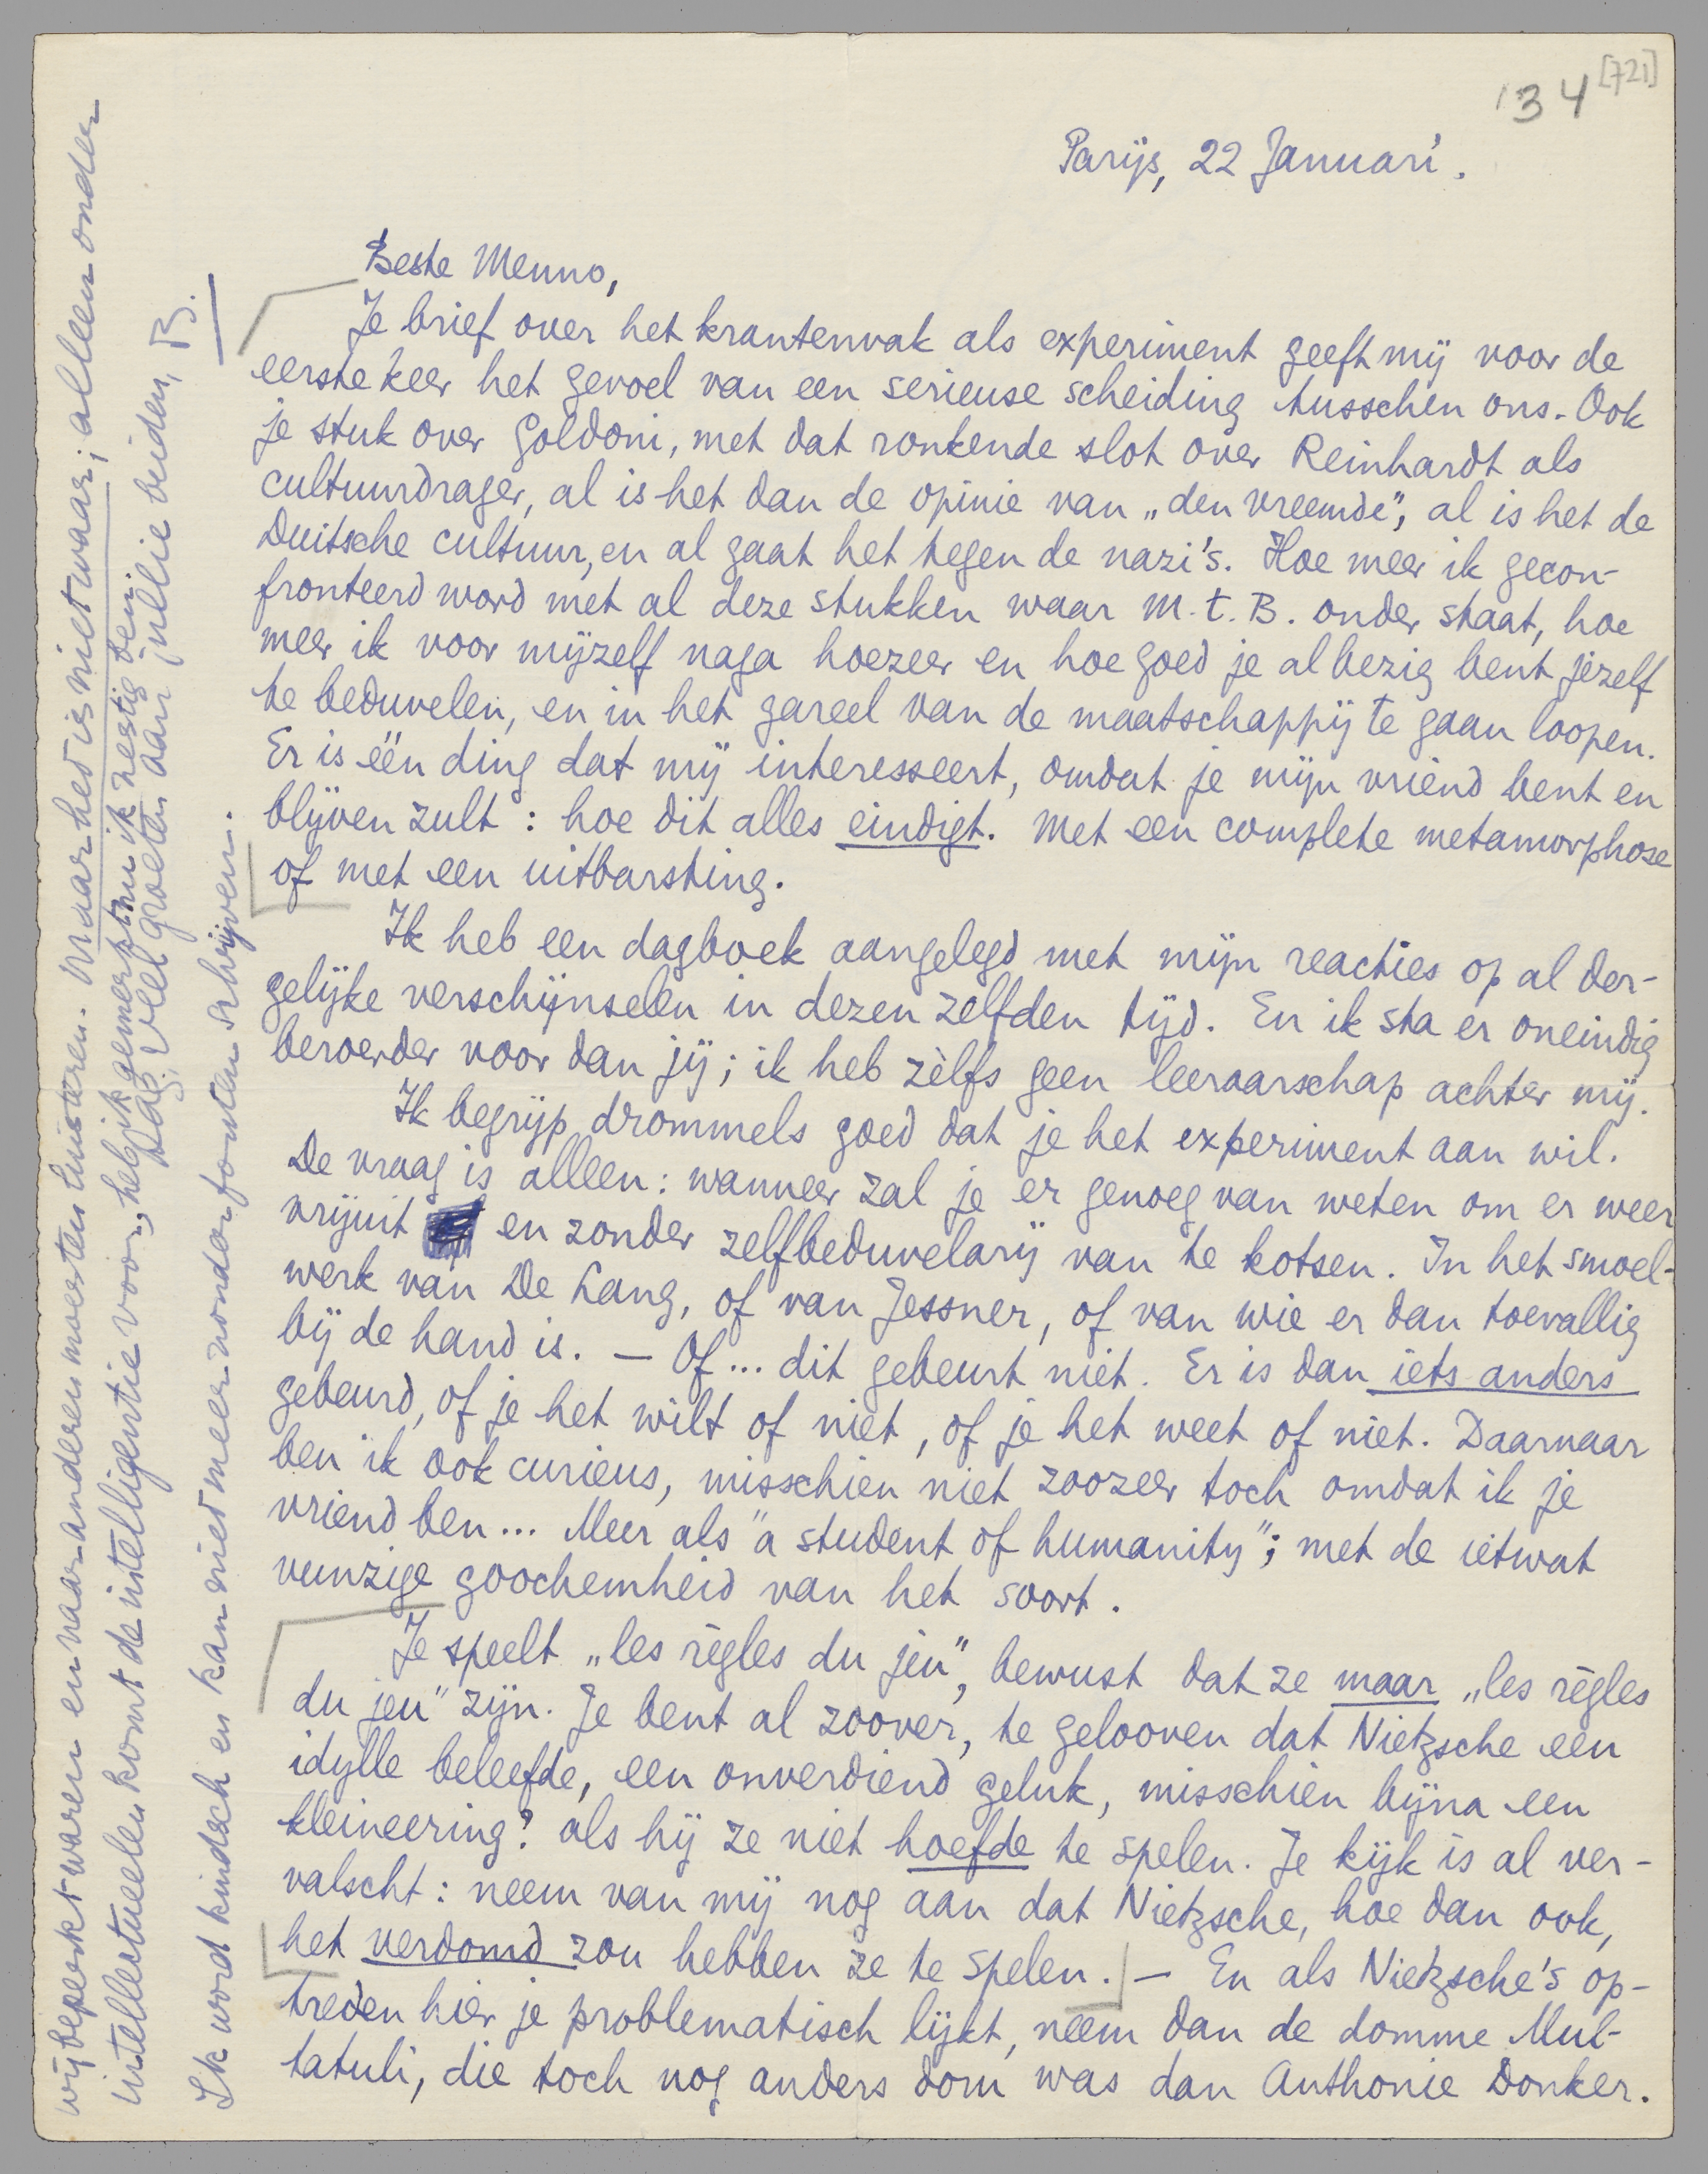 '34 [721]
Parijs, 22 Januari.
Beste Menno,
Je brief over het krantenvak als experiment geeft mij voor de
eerste keer het gevoel van een serieuse scheiding tusschen ons. Ook
je stuk over Goldoni, met dat ronkende slot over Reinhardt als
cultuurdrager, al is het dan de opinie van „den vreemde", al is het de
Duitsche cultuur, en al gaat het tegen de nazi's. Hoe meer ik gecon-
fronteerd word met al deze stukken waar M.t.B. onder staat, hoe
meer ik voor mijzelf naga hoezeer en hoe goed je al bezig bent jezelf
te beduvelen, en in het gareel van de maatschappij te gaan loopen.
Er is één ding dat mij interesseert, omdat je mijn vriend bent en
blijven zult: hoe dit alles eindigt. Met een complete metamorphose
of met een uitbarsting.
Ik heb een dagboek aangelegd met mijn reacties op al der-
gelijke verschijnselen in dezen zelfden tijd. En ik sta er oneindig
beroerder voor dan jij; ik heb zèlfs geen leeraarschap achter mij.
Ik begrijp drommels goed dat je het experiment aan wil.
De vraag is alleen: wanneer zal je er genoeg van weten om er weer
vrijuit en zonder zelfbeduvelarij van te kotsen. In het smoel-
werk van De Lang, of van Jessner, of van wie er dan toevallig
bij de hand is. — Of... dit gebeurt niet. Er is dan iets anders
gebeurd, of je het wilt of niet, of je het weet of niet. Daarnaar
ben ik ook curieus, misschien niet zoozeer toch omdat ik je
vriend ben... Meer als "a student of humanity"; met de ietwat
vunzige goochemheid van het soort.
Je speelt „les règles du jeu", bewust dat ze maar „les règles
du jeu" zijn. Je bent al zoover, te gelooven dat Nietzsche een
idylle beleefde, een onverdiend geluk, misschien bijna een
kleineering? als hij ze niet hoefde te spelen. Je kijk is al ver-
valscht: neem van mij nog aan dat Nietzsche, hoe dan ook,
het verdomd zou hebben ze te spelen. — En als Nietzsche's op-
treden hier je problematisch lijkt, neem dan de domme Mul-
tatuli, die toch nog anders dom was dan Anthonie Donker.
wij beperkt waren en naar anderen moesten luisteren. Maar het is niet waar; alleen onder
intellectueelen komt de intelligentie voor, heb ik gemerkt nu ik zestig ben.
Dag, veel groeten aan jullie beiden, B.
Ik word kindsch en kan niet meer zonder fouten schrijven.